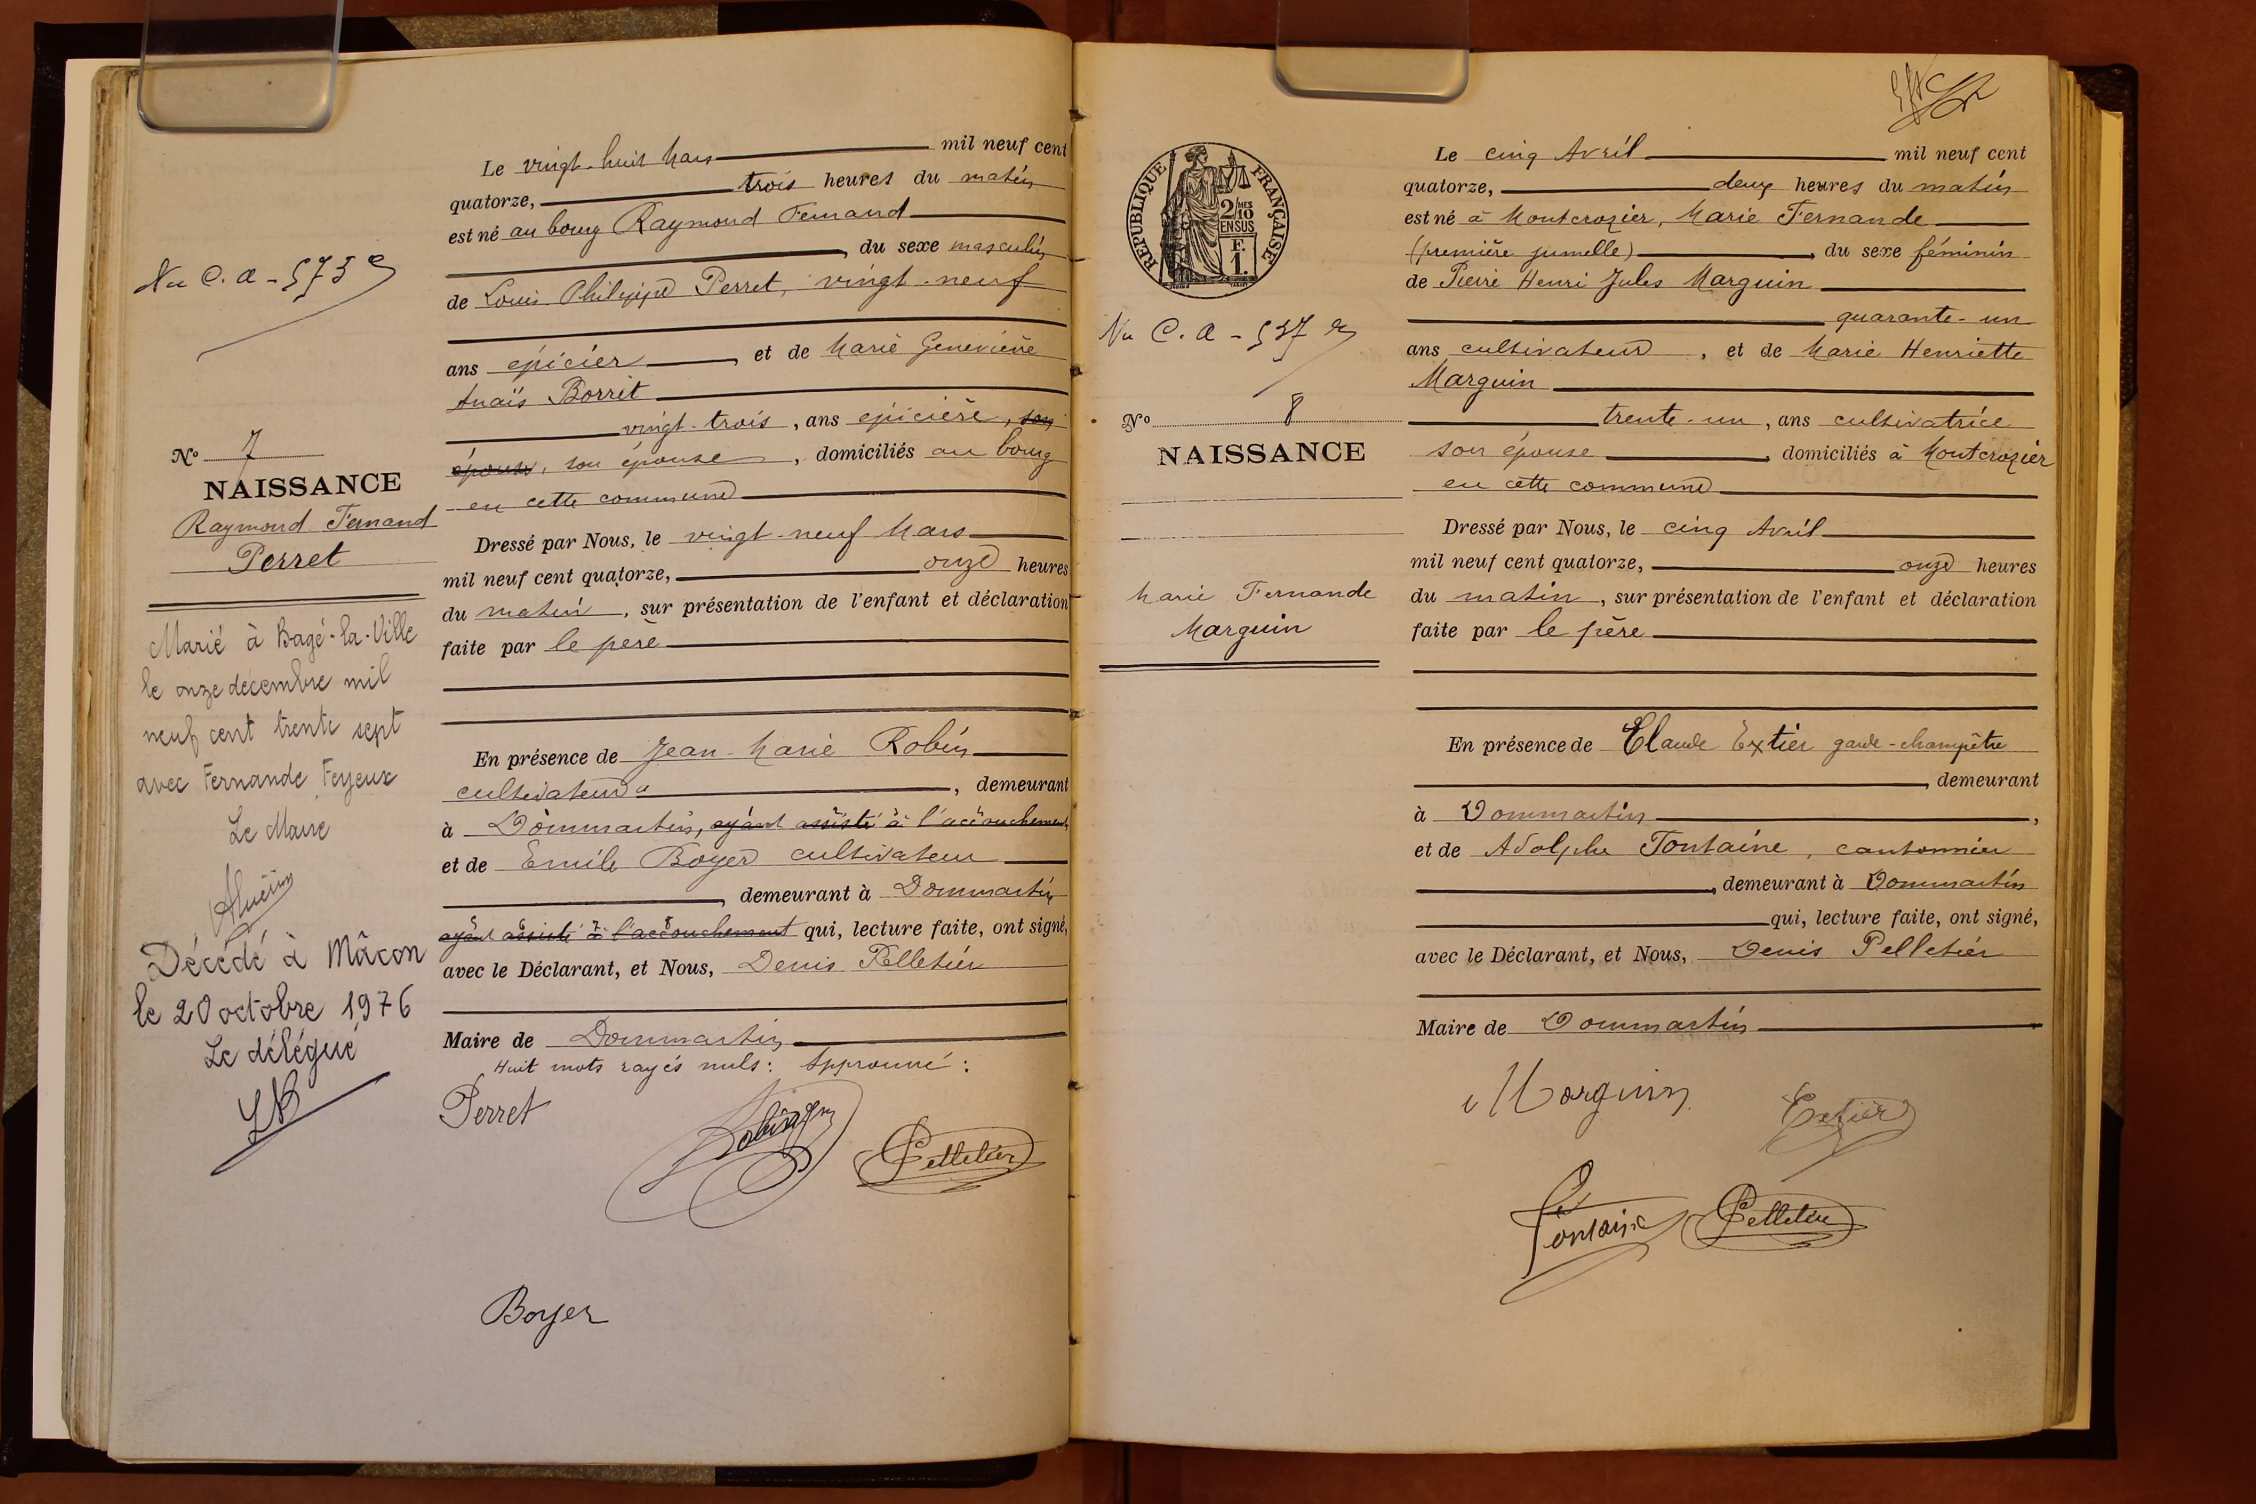 Le vingt-huit Mars mil neuf cent
quatorze, trois heures du matin
est né au bourg Raymond Fernand
, du sexe masculin
de Louis Philippe Perret, vingt-neuf
ans épicier, et de Marie Geneviève
Anaïs Borrit
vingt-trois, ans épicière, son
épouse, son épouse, domiciliés au bourg
en cette commune
Dressé par Nous, le vingt-neuf Mars
mil neuf cent quatorze, onze heures
du matin, sur présentation de l'enfant et déclaration
faite par le père
En présence de Jean-Marie Robin
cultivateur, demeurant
à Dommartin, ayant assisté à l'accouchement
et de Emile Boyer cultivateur
, demeurant à Dommartin
ayant assisté à l'accouchement qui, lecture faite, ont signé,
avec le Déclarant, et Nous, Denis Pelletier
Maire de Dommartin
Huit mots rayés nuls: Approuvé:
Perret
Pelletier
Boyer
C. A - 573
N° 7
NAISSANCE
Raymond Fernand
Perret
Marié à Bagé-la-Ville
le onze décembre mil
neuf cent trente sept
avec Fernande Feyeux
Le Maire
Décédé à Mâcon
le 20 octobre 1976
Le délégué
RÉPUBLIQUE FRANÇAISE
2/10 MES
EN SUS
F.
1.
C. A - 537
N° 8
NAISSANCE
Marie Fernande
Marguin
Le cinq Avril mil neuf cent
quatorze, deux heures du matin
est né à Montcrozier, Marie Fernande
(première jumelle), du sexe féminin
de Pierre Henri Jules Marguin
quarante-un
ans cultivateur, et de Marie Henriette
Marguin
trente-un, ans cultivatrice
son épouse, domiciliés à Montcrozier
en cette commune
Dressé par Nous, le cinq Avril
mil neuf cent quatorze, onze heures
du matin, sur présentation de l'enfant et déclaration
faite par le père
En présence de Claude Extier garde-champêtre
, demeurant
à Dommartin,
et de Adolphe Fontaine, cantonnier
, demeurant à Dommartin
qui, lecture faite, ont signé,
avec le Déclarant, et Nous, Denis Pelletier
Maire de Dommartin
Marguin
Extier
Fontaine
Pelletier